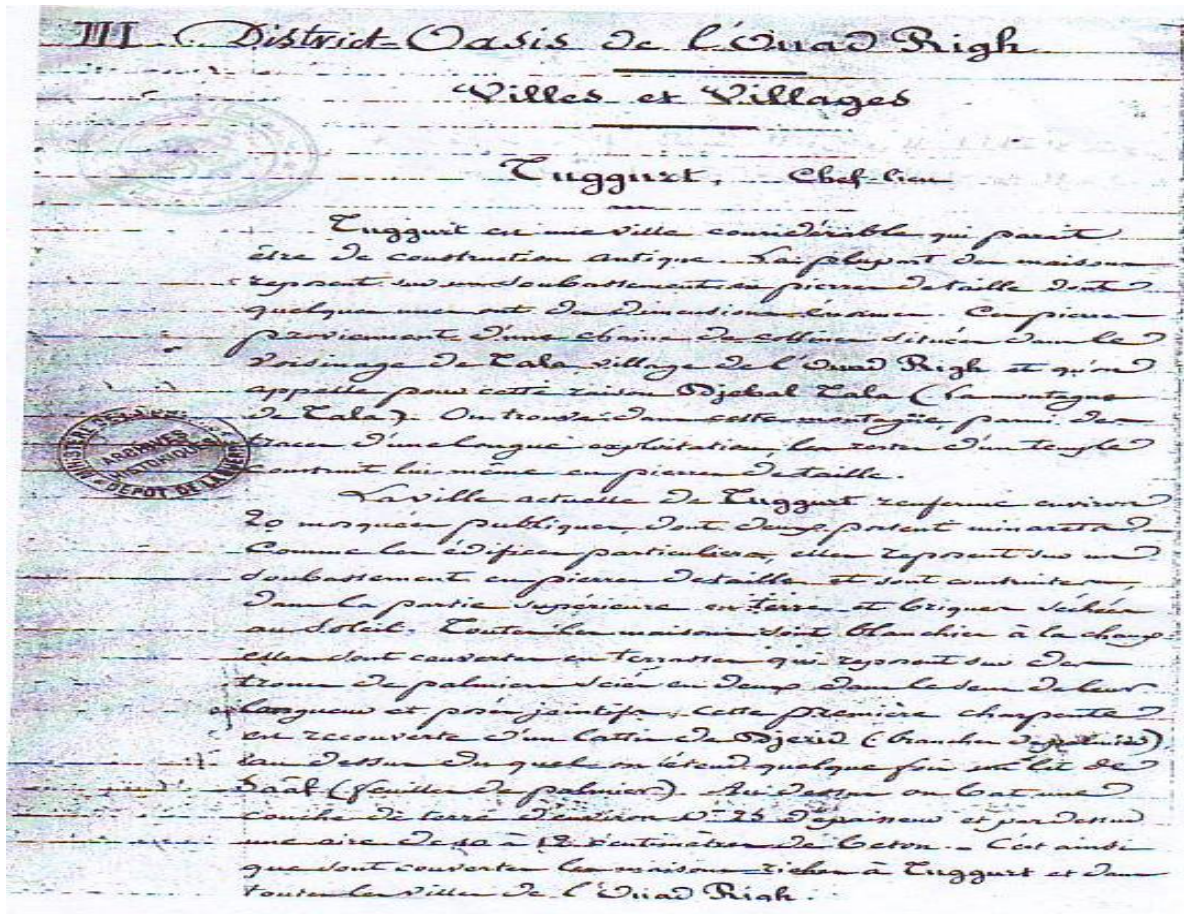 III. District-Oasis de l'Ouad Righ
Villes et Villages
Tuggurt, Chef-lieu
Tuggurt est une ville considérable qui parait
être de construction antique. La plupart des maisons
reposent sur un soubassement en pierres de taille dont
quelques unes ont des dimensions énormes. Ces pierres
proviennent d'une chaine de collines située dans le
voisinage de Tala, village de l'Ouad Righ et qu'on
appelle pour cette raison Djebal Tala (la montagne
de Tala). On trouve dans cette montagne, parmi des
traces d'une longue exploitation, les restes d'un temple
construit lui-même en pierres de taille.
ARCHIVES
HISTORIQUES
DEPOT DE LA GUERRE
La ville actuelle de Tuggurt renferme environ
20 mosquées publiques, dont deux portent minarets.
Comme les édifices particuliers, elles reposent sur un
soubassement en pierres de taille et sont construites
dans la partie supérieure en terre et briques séchées
au soleil. Toutes les maisons sont blanchies à la chaux.
elles sont couvertes en terrasses qui reposent sur des
troncs de palmiers sciés en deux dans le sens de leur
longueur et posés jointifs; cette première charpente
est recouverte d'un lattis de Djerid (branches de palmiers)
au dessus du quel on étend quelque fois un lit de
Saâf (feuilles de palmier). Au dessus on bat une
couche de terre d'environ 0m 25 d'épaisseur et par dessus
une aire de 10 à 12 centimètres de beton. C'est ainsi
que sont couvertes les maisons riches à Tuggurt et dans
toutes les villes de l'Ouad Righ.